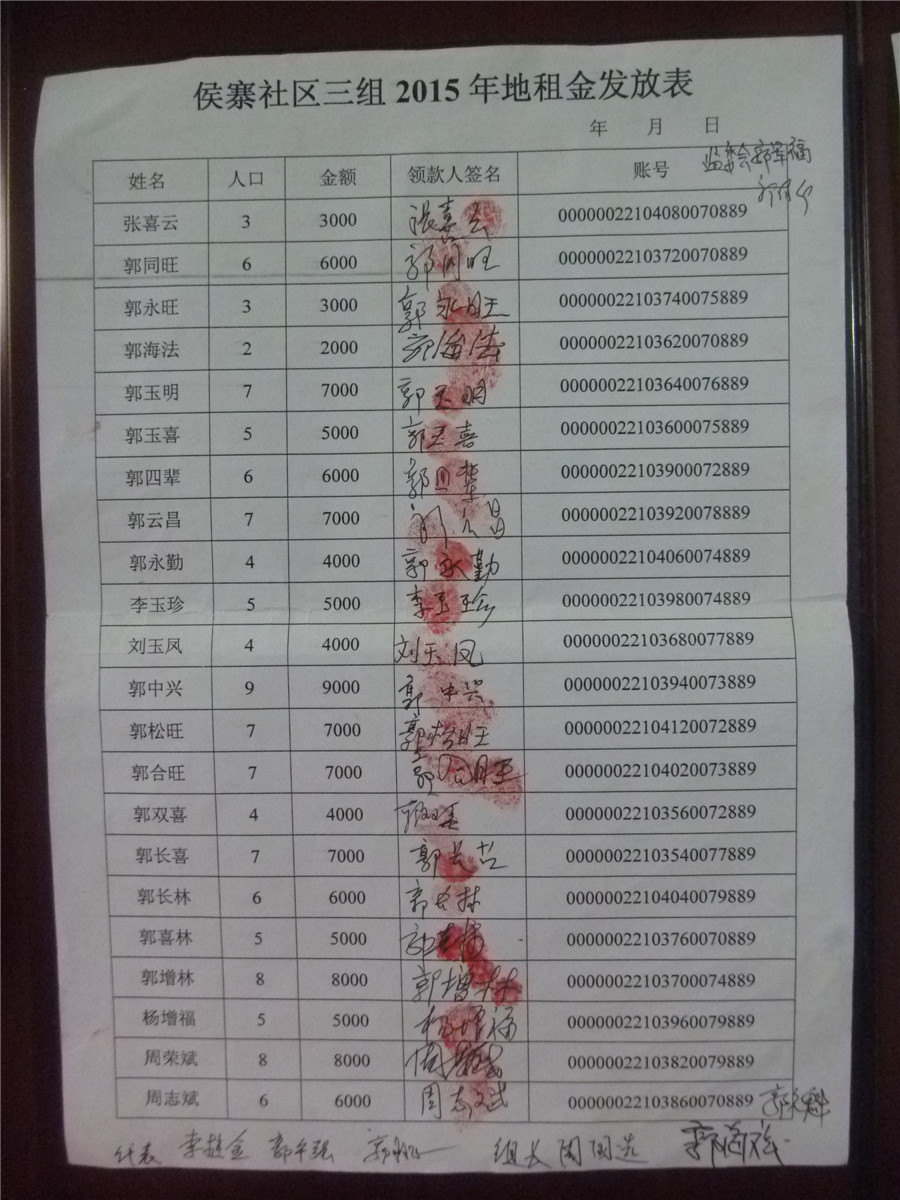 侯寨社区三组 2015 年地租金发放表
年 月 日
姓名 人口 金额 领款人签名 账号 监委会郭军福
张喜云 3 3000 张喜云 00000022104080070889
郭同旺 6 6000 郭同旺 00000022103720070889
郭永旺 3 3000 郭永旺 00000022103740075889
郭海法 2 2000 郭海法 00000022103620070889
郭玉明 7 7000 郭玉明 00000022103640076889
郭玉喜 5 5000 郭玉喜 00000022103600075889
郭四辈 6 6000 郭四辈 00000022103900072889
郭云昌 7 7000 郭云昌 00000022103920078889
郭永勤 4 4000 郭永勤 00000022104060074889
李玉珍 5 5000 李玉珍 00000022103980074889
刘玉凤 4 4000 刘玉凤 00000022103680077889
郭中兴 9 9000 郭中兴 00000022103940073889
郭松旺 7 7000 郭松旺 00000022104120072889
郭合旺 7 7000 郭合旺 00000022104020073889
郭双喜 4 4000 郭双喜 00000022103560072889
郭长喜 7 7000 郭长喜 00000022103540077889
郭长林 6 6000 郭长林 00000022104040079889
郭喜林 5 5000 00000022103760070889
郭增林 8 8000 郭增林 00000022103700074889
杨增福 5 5000 杨增福 00000022103960079889
周荣斌 8 8000 周荣斌 00000022103820079889
周志斌 6 6000 周志斌 00000022103860070889
代表 组长 周国选